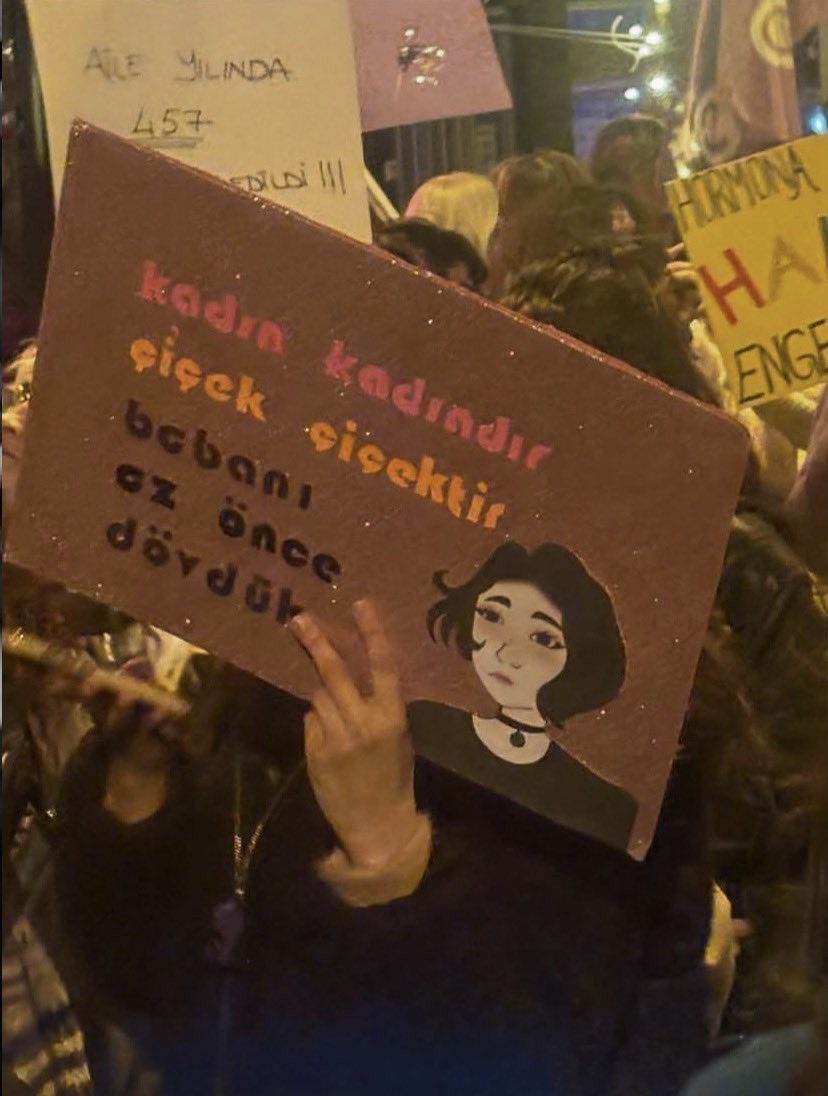 AİLE YILINDA
457
EDİLDİ !!!
kadın kadındır
çiçek çiçektir
babanı
az önce
dövdük
HORMONA
HA
ENGE